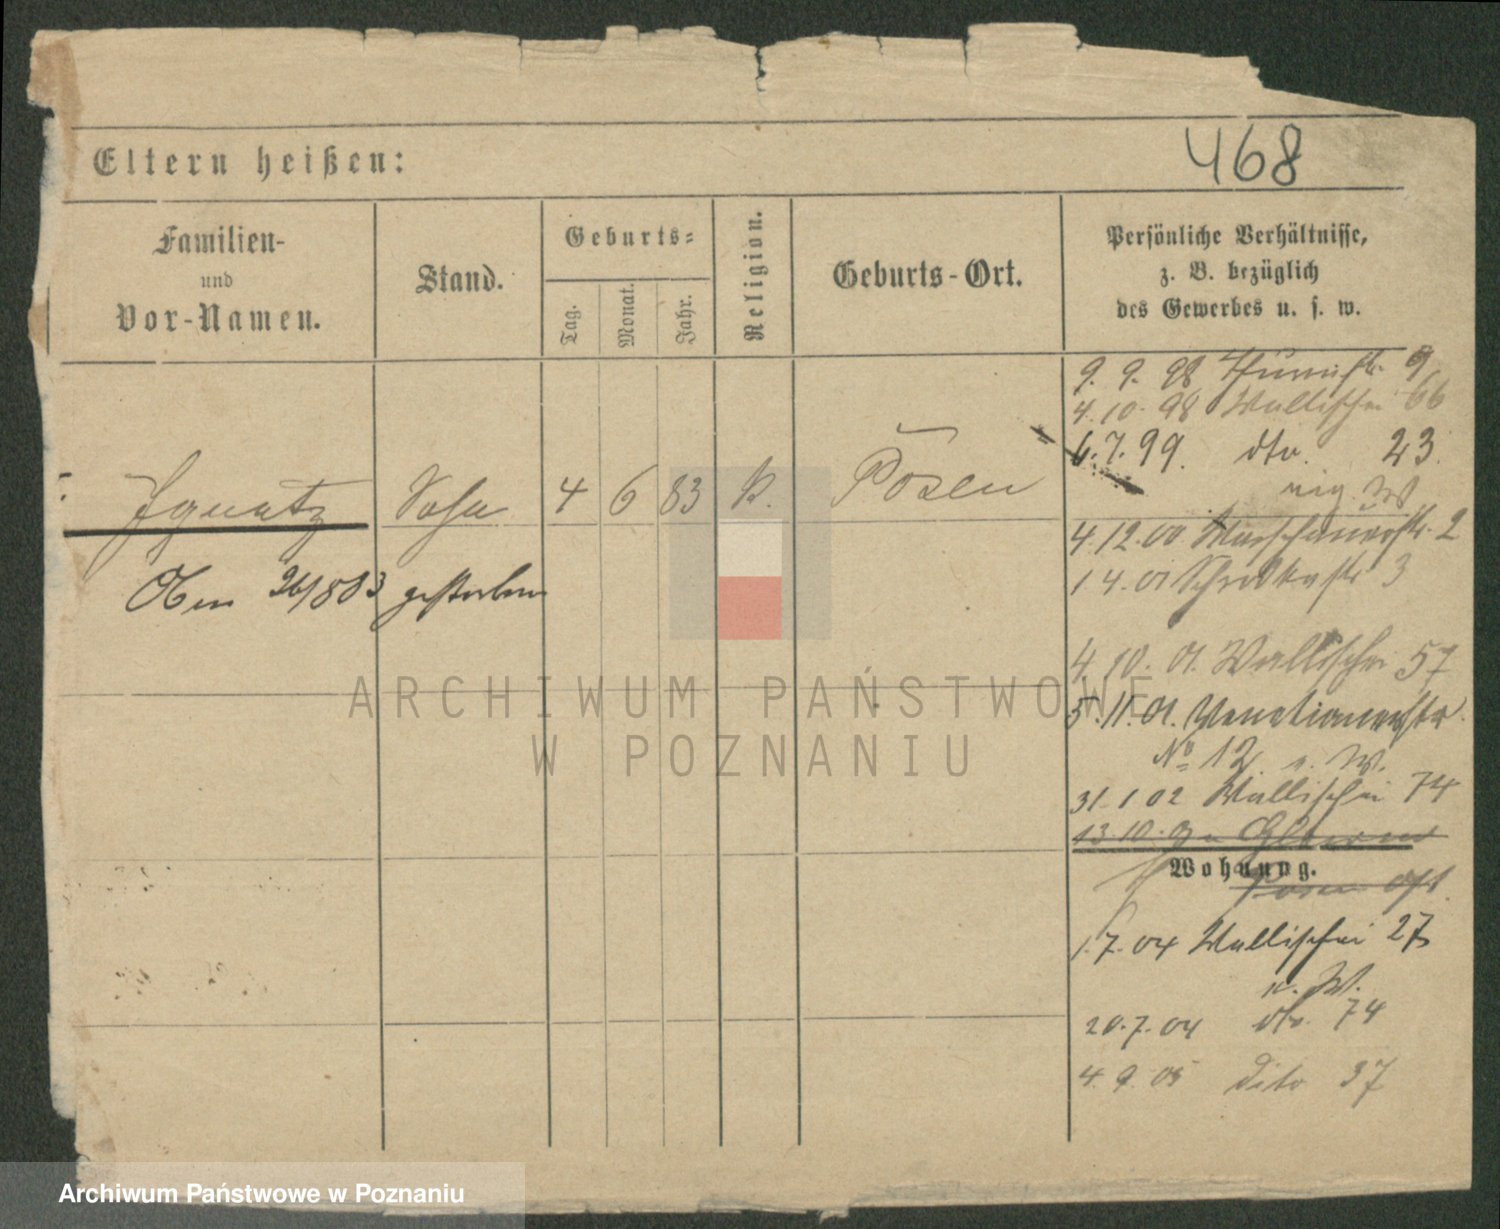 468
Eltern heißen:
Familien-
und
Vor-Namen.
Stand.
Geburts-
Tag.
Monat.
Jahr.
Religion.
Geburts-Ort.
Persönliche Verhältnisse,
z. B. bezüglich
des Gewerbes u. s. w.
9. 9. 98 9
4.10.98 Wallischei 66
6.7.99. dto. 23.
W
Ignatz Sohn 4 6 83 k. Posen
4.12.00 Warschauerstr. 2
gestorben
1 4.01 Schrodkastr 3
4. 10. 01. Wallischei 57
5.11.01. Venetianerstr.
No 12. b. W.
31 1 02 Wallischei 74
13.10. zu Eltern
Wohnung.
Posen
1.7.04 Wallischei 27
b. W.
20.7.04 dto. 74
4.9.05 dito 37
ARCHIWUM PAŃSTWOWE
W POZNANIU
Archiwum Państwowe w Poznaniu